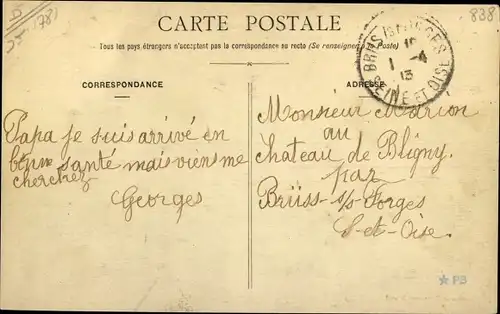 838
CARTE POSTALE
Tous les pays étrangers n'acceptent pas la correspondance au recto (Se renseigner à la Poste)
CORRESPONDANCE
ADRESSE
1 -4
13
SEINE ET OISE
Papa je suis arrivé en
bonne santé mais viens me
cherchez
Georges
Monsieur Marion
au
Chateau de Bligny.
par
Brüss-s/s-Forges
S-et-Oise.
★ PB